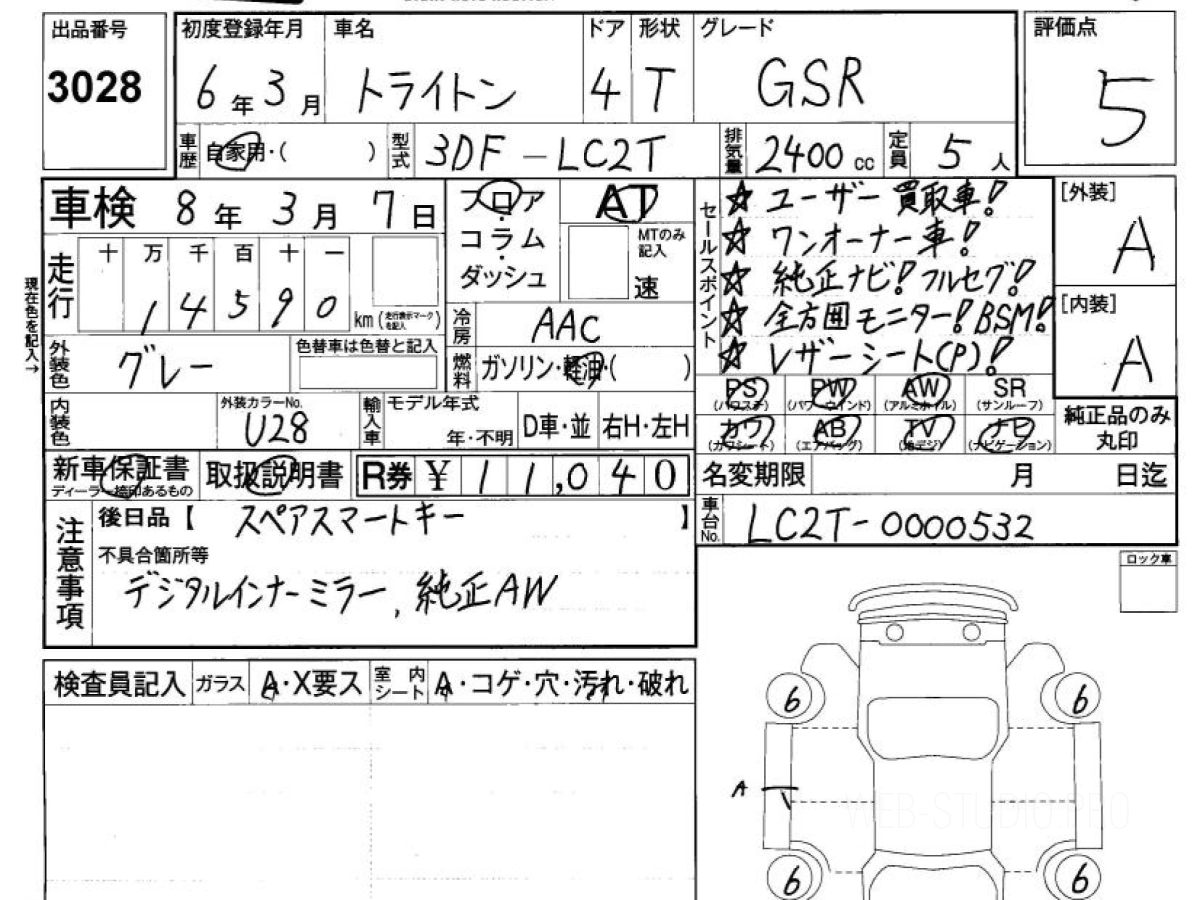 出品番号
3028
初度登録年月
6年3月
車名
トライトン
ドア
4
形状
T
グレード
GSR
評価点
5
車歴 自家用・( )
型式 3DF-LC2T
排気量 2400cc
定員 5人
車検 8年3月7日
フロア
コラム
ダッシュ
AT
MTのみ
記入
速
セールスポイント
☆ユーザー買取車!
☆ワンオーナー車!
☆純正ナビ!フルセグ!
☆全方囲モニター!BSM!
☆レザーシート(P)!
[外装]
A
[内装]
A
現在色を記入→
走行
十 万 千 百 十 一
1 4 5 9 0
km(走行表示マークを記入)
冷房 AAC
燃料 ガソリン・軽油・( )
外装色 グレー
色替車は色替と記入
内装色
外装カラーNo.
U28
輸入車
モデル年式
年・不明
D車・並
右H・左H
PS
(パワステ)
PW
(パワーウインド)
AW
(アルミホイル)
SR
(サンルーフ)
カワ
(カワシート)
AB
(エアバッグ)
TV
(地デジ)
ナビ
(ナビゲーション)
純正品のみ
丸印
新車保証書
ディーラー捺印あるもの
取扱説明書
R券 ¥11,040
名変期限 月 日迄
車台No. LC2T-0000532
注意事項
後日品【 スペアスマートキー 】
不具合箇所等
デジタルインナーミラー, 純正AW
ロック車
検査員記入
ガラス
A・X要ス
室内シート
A・コゲ・穴・汚れ・破れ
6
6
A
6
6
WEB-STUDIO.PRO